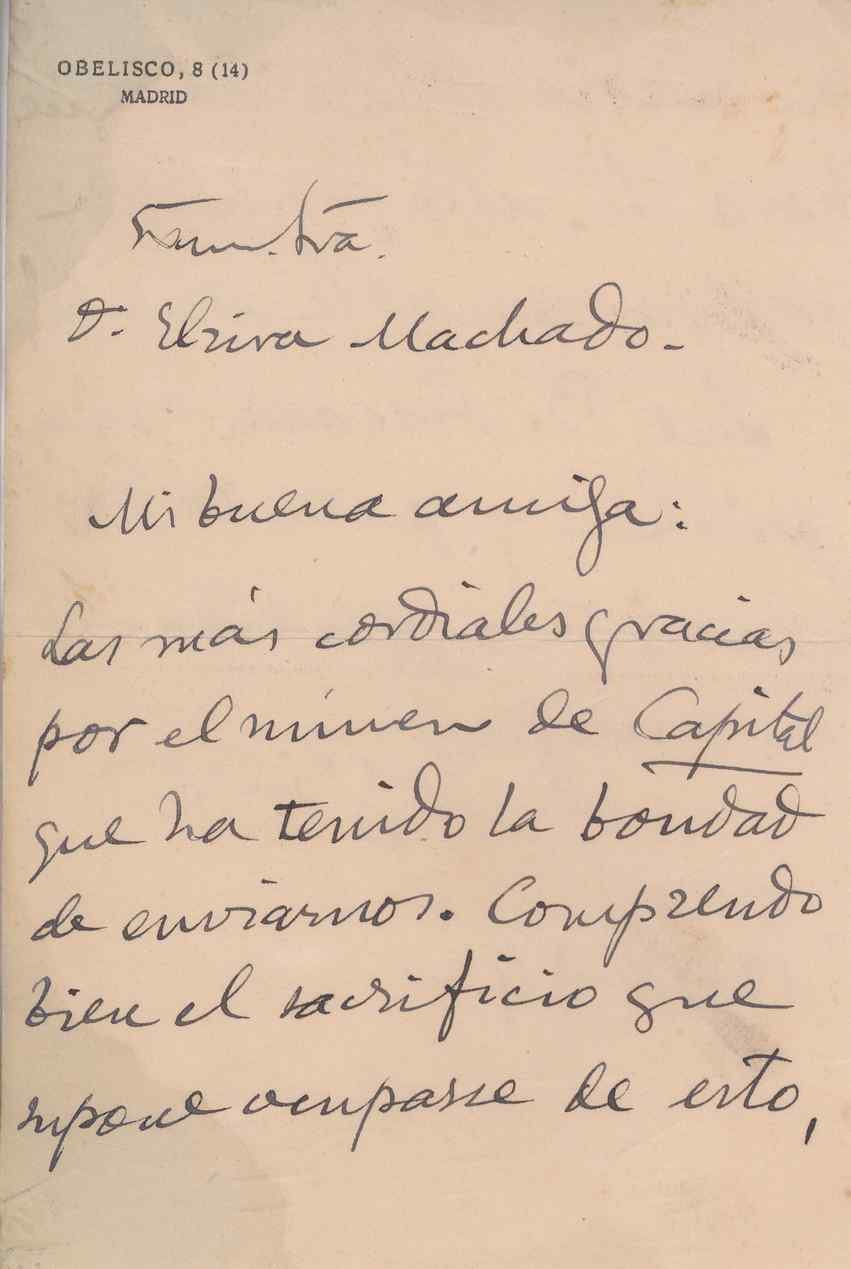 OBELISCO, 8 (14)
MADRID
Exma. Sra.
D.ª Elzira Machado.
Mi buena amiga:
Las más cordiales gracias
por el número de Capital
que ha tenido la bondad
de enviarnos. Comprendo
bien el sacrificio que
supone ocuparse de esto,